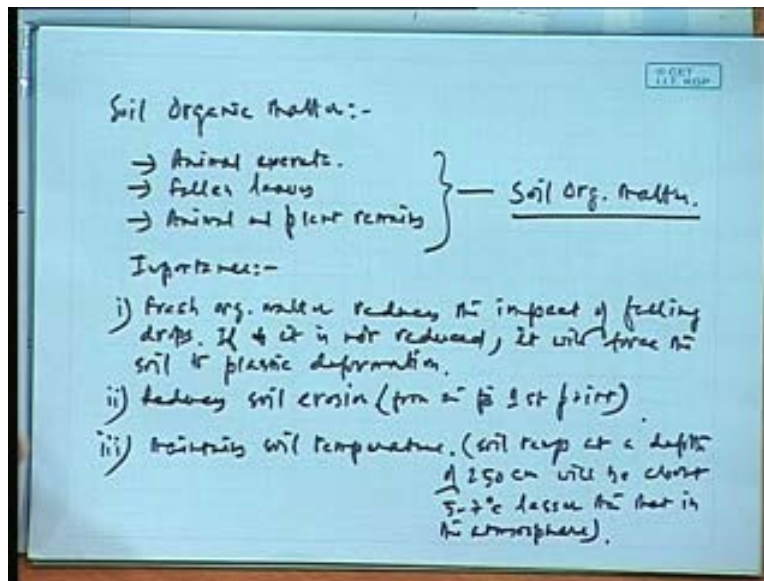 © CET
I.I.T. KGP
Soil Organic Matter:-
→ Animal excreta.
→ Fallen leaves
→ Animal and plant remains
— Soil Org. Matter.
Importance:-
i) Fresh org. matter reduces the impact of falling
drops. If it is not reduced, it will force the
soil to plastic deformation.
ii) Reduces soil erosion (from the 1st point)
iii) Maintains soil temperature. (soil temp at a depth
of 250 cm will be about
5-7°c lesser than that in
the atmosphere).